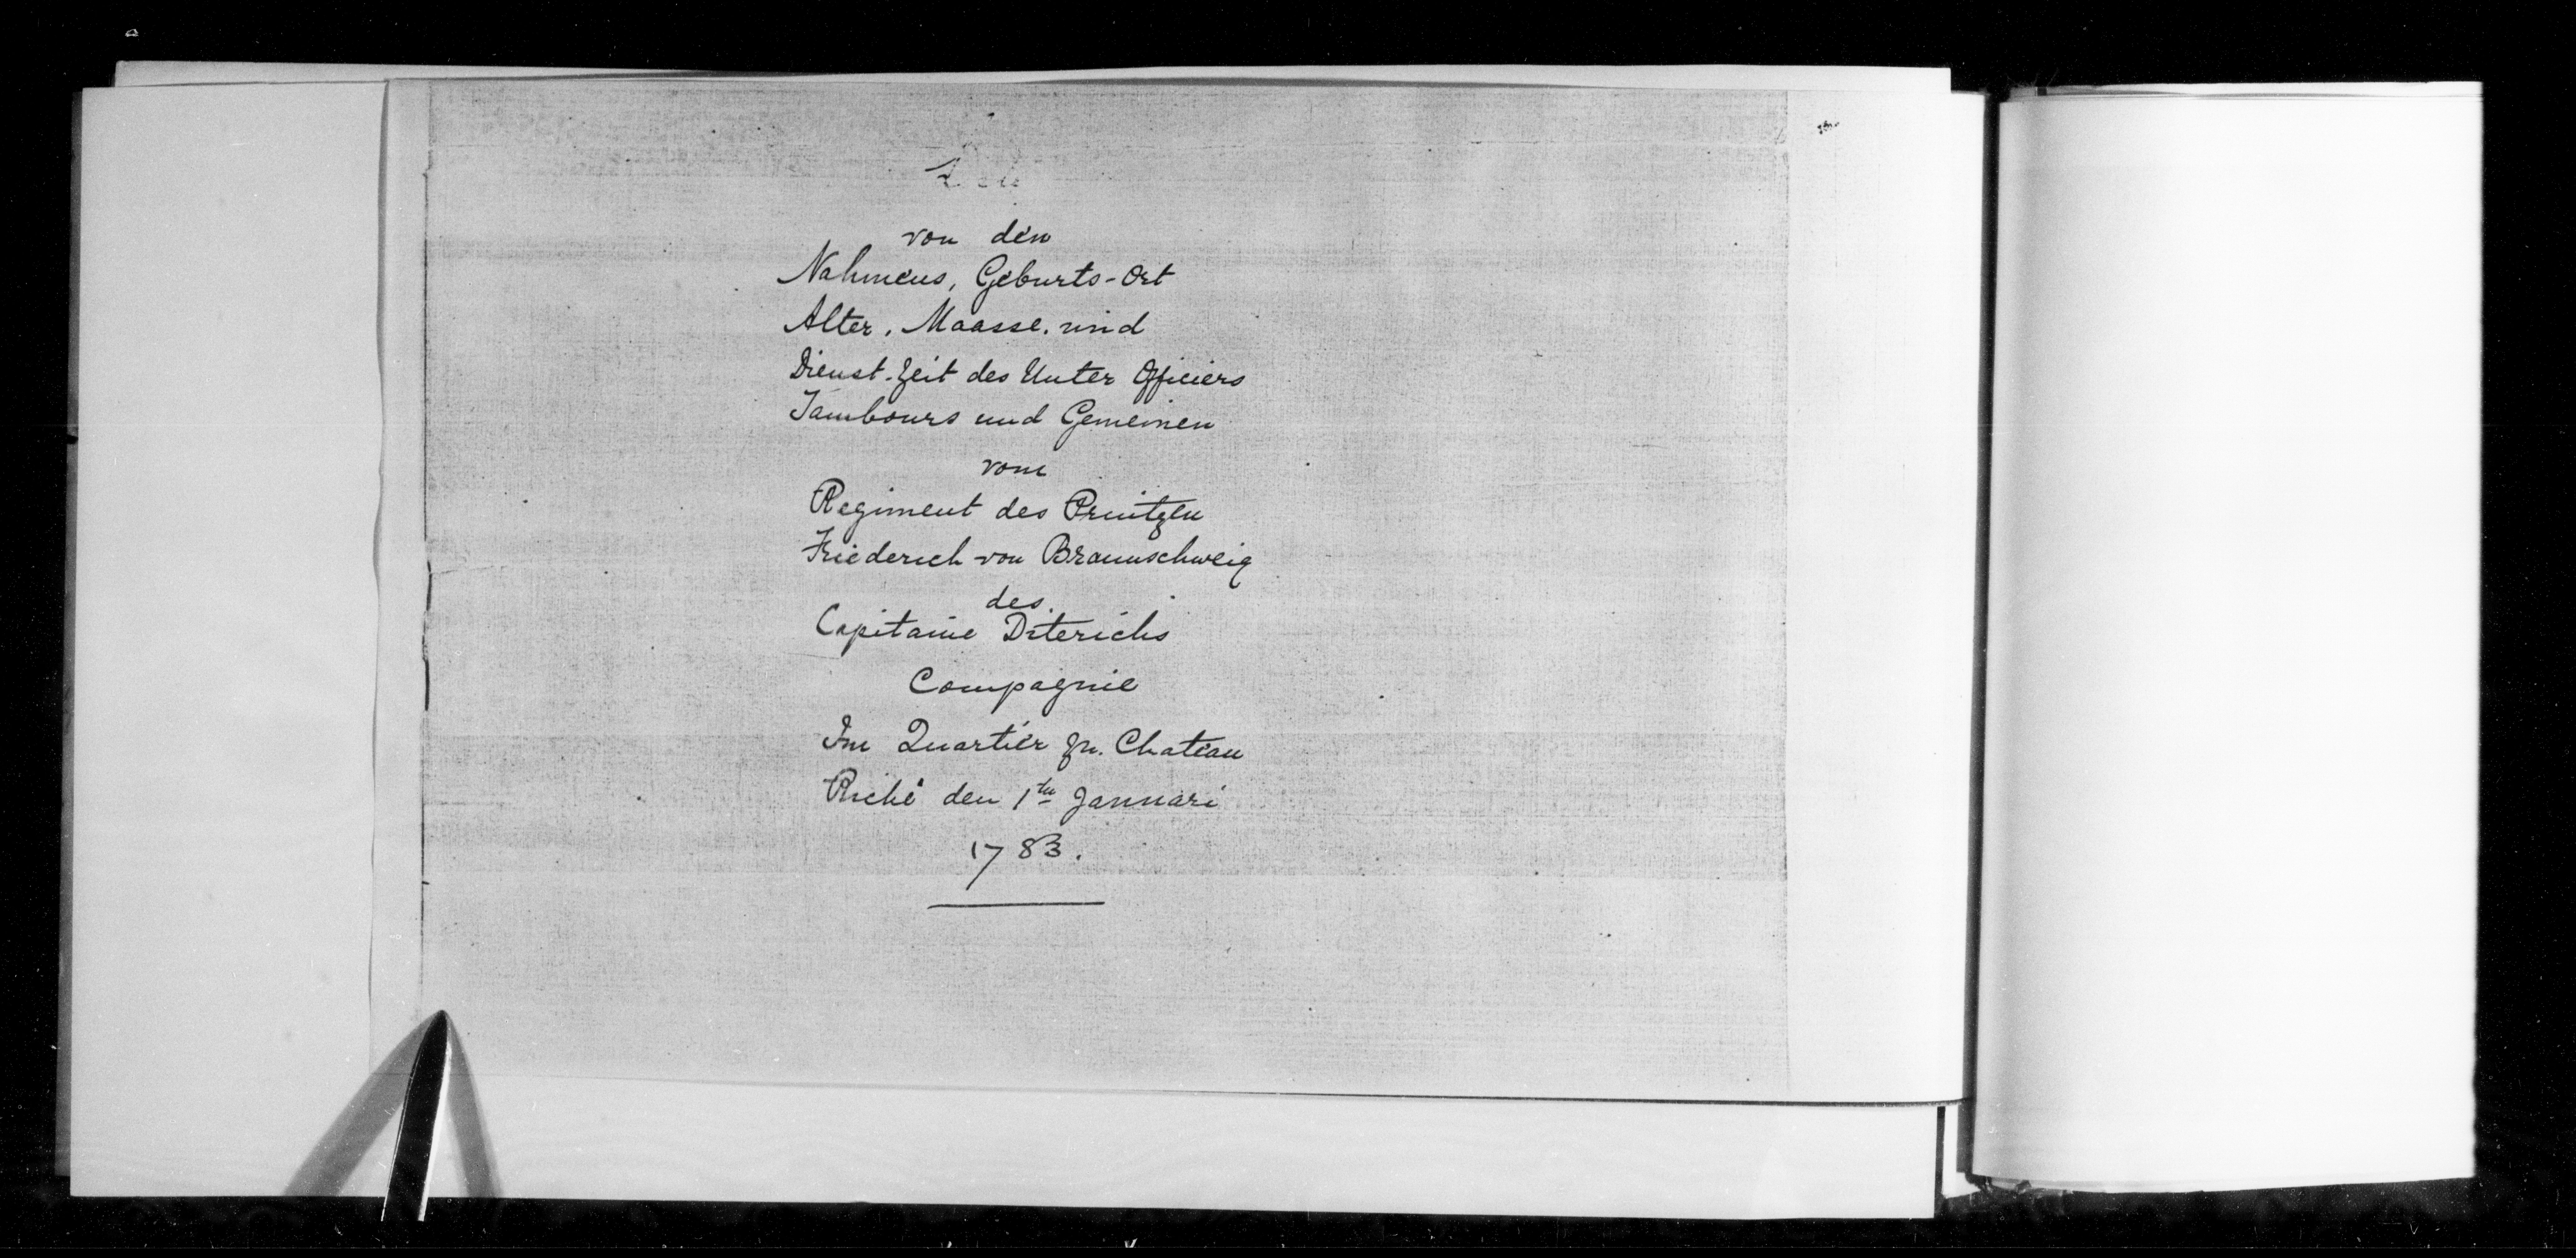 von den
Nahmens, Geburts-Ort
Alter, Maasse, und
Dienst-Zeit des Unter Officiers
Tambours und Gemeinen
vom
Regiment des Printzen
Friederich von Braunschweig
des
Capitaine Diterichs
Compagnie
Im Quartier zu Chateau
Riché den 1ten Januari
1783.